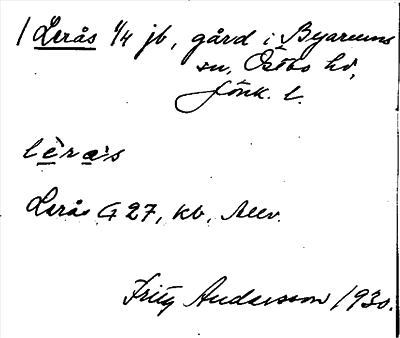 1 Lerås 1/4 jb, gård i Byarums
sn, Östbo hd,
Jönk. l.
lèrås
Lerås G 27, kb, Allv.
Fritz Andersson 1930.